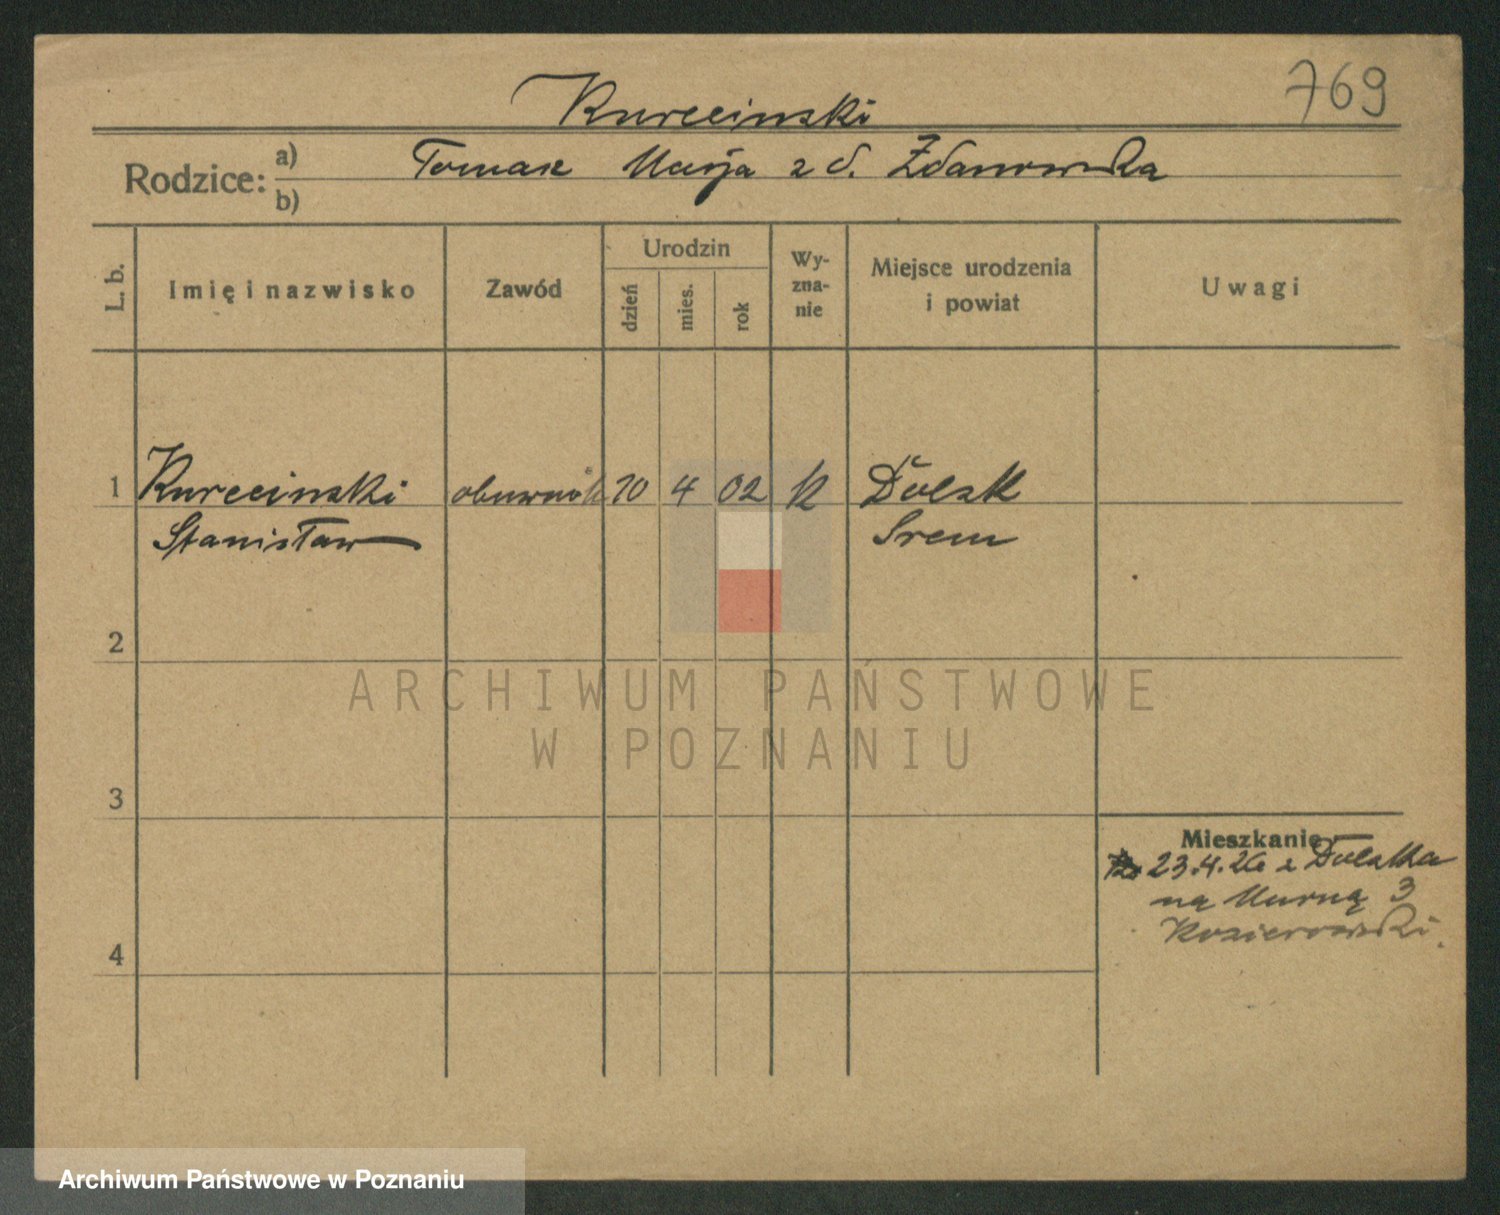 769
Kurcinski
Rodzice: a) Tomasz Marja z d. Zdanowska
b)
L. b. Imię i nazwisko Zawód Urodzin dzień mies. rok Wyznanie Miejsce urodzenia i powiat Uwagi
1 Kurcinski obuwnik 10 4 02 k Dolsk
Stanisław Srem
2
ARCHIWUM PAŃSTWOWE
W POZNANIU
3
Mieszkanie
23.4.26 z Dolska
na Murną 3
Kozierowski
4
Archiwum Państwowe w Poznaniu